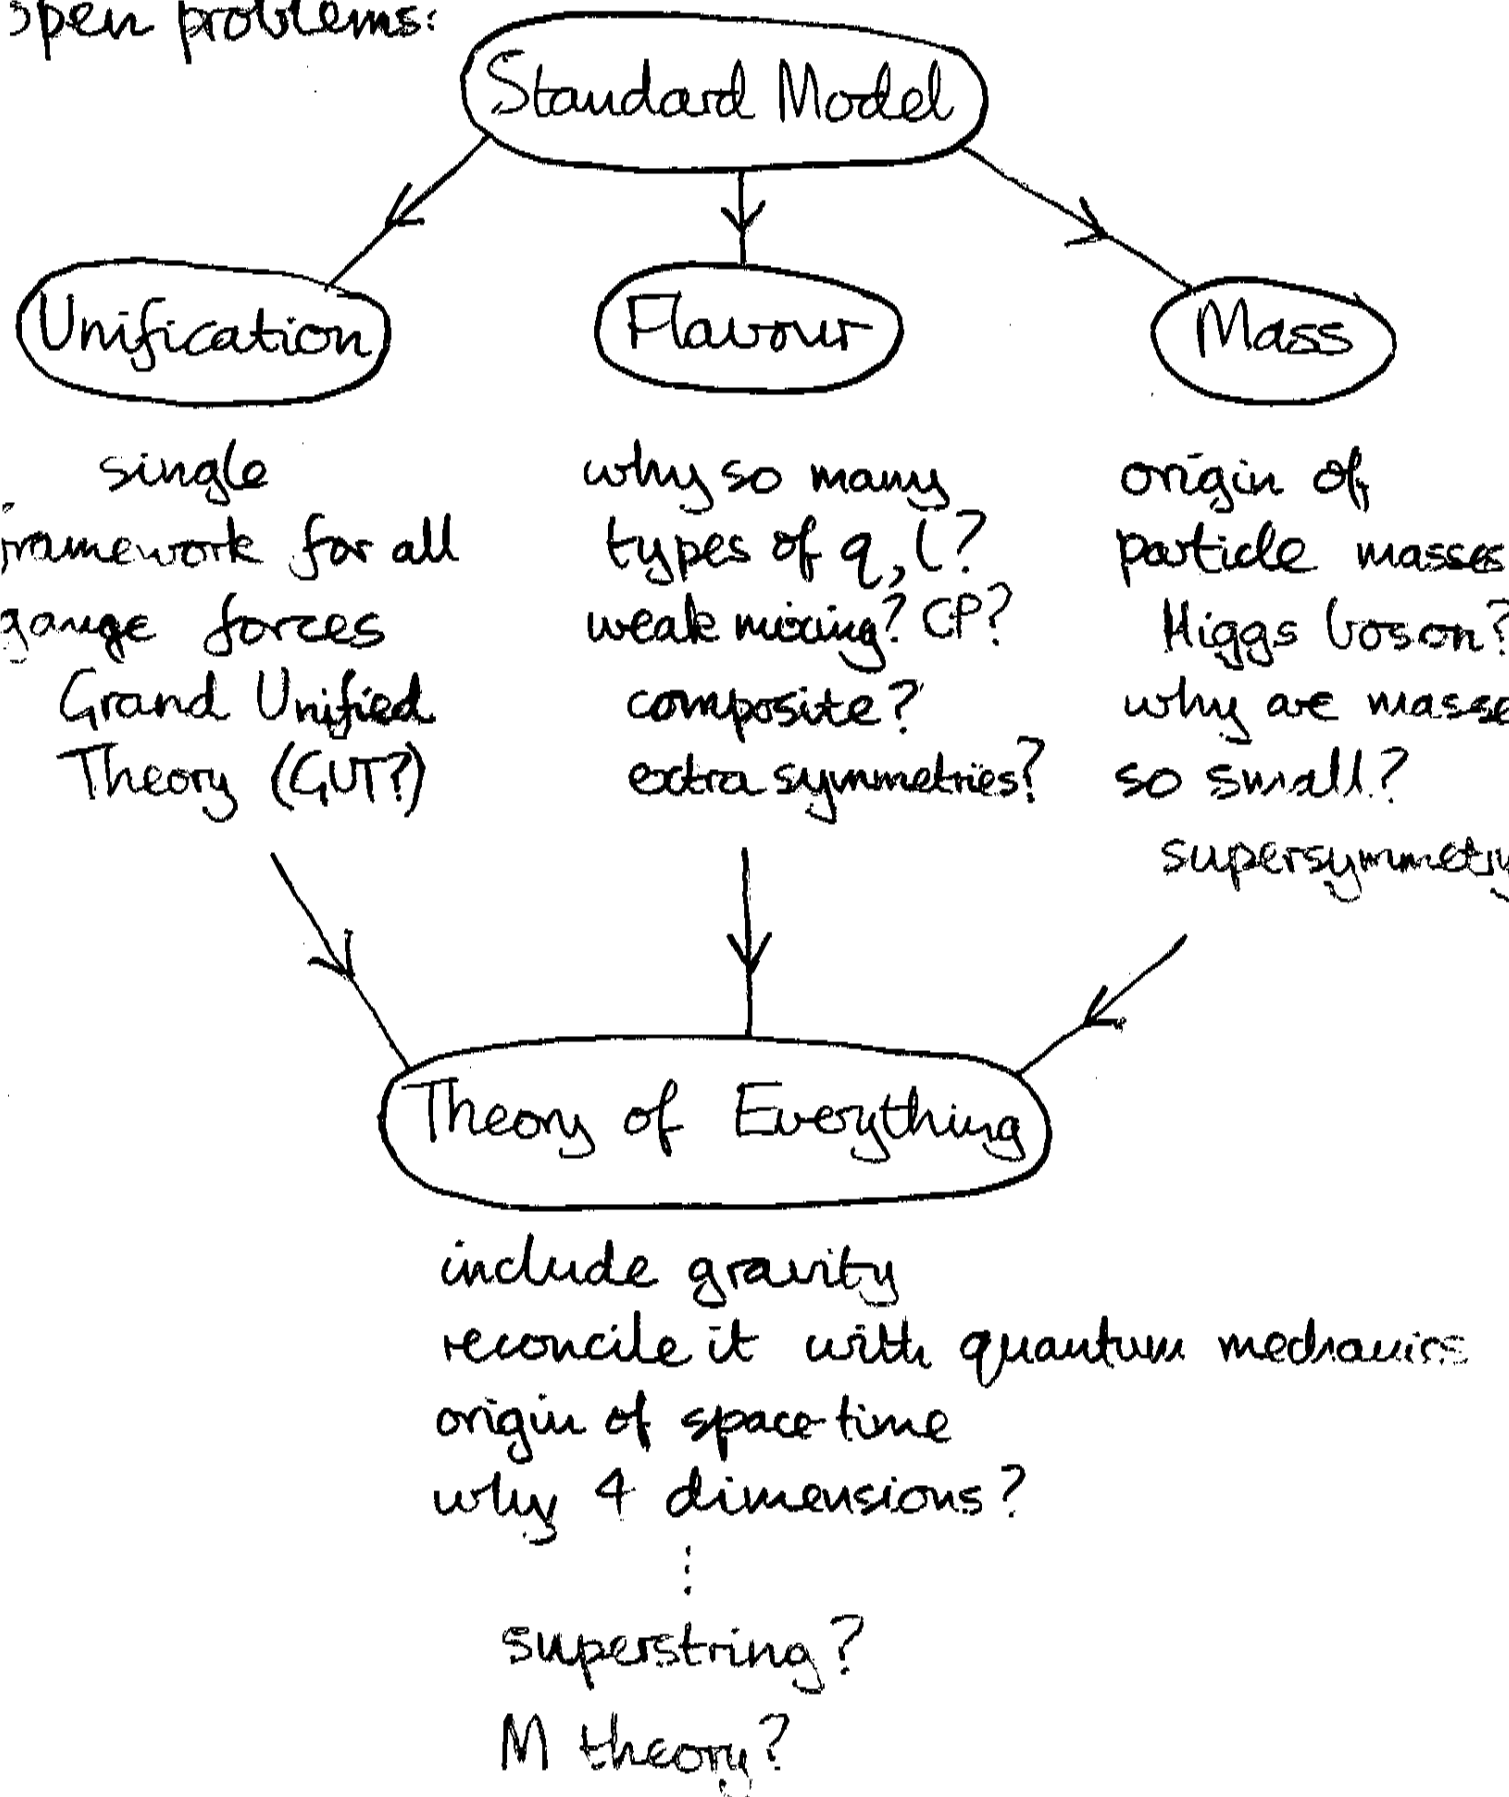 open problems:
Standard Model
Unification
single
framework for all
gauge forces
Grand Unified
Theory (GUT?)
Flavour
why so many
types of q, l?
weak mixing? CP?
composite?
extra symmetries?
Mass
origin of
particle masses
Higgs boson?
why are masse
so small?
supersymmetry
Theory of Everything
include gravity
reconcile it with quantum mechanics
origin of space-time
why 4 dimensions?
⋮
superstring?
M theory?